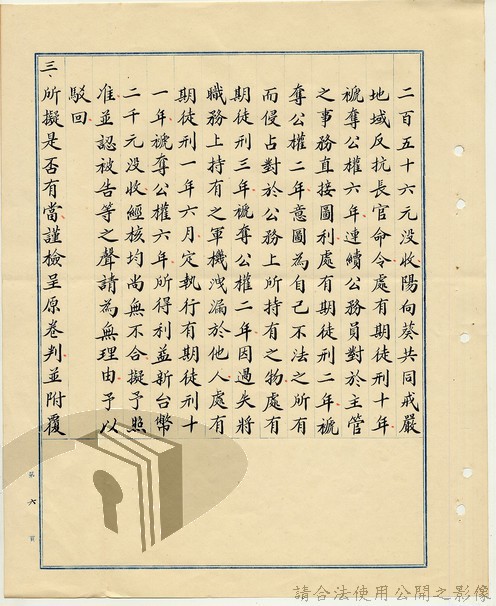 二百五十六元没收陽向葵共同戒嚴
地域反抗長官命令處有期徒刑十年
褫奪公權六年連續公務員對於主管
之事務直接圖利處有期徒刑二年褫
奪公權二年意圖為自己不法之所有
而侵占對於公務上所持有之物處有
期徒刑三年褫奪公權二年因過失將
職務上持有之軍機洩漏於他人處有
期徒刑一年六月定執行有期徒刑十
一年褫奪公權六年所得利益新台幣
二千元没收經核均尚無不合擬予照
准並認被告等之聲請為無理由予以
駁回
三、所擬是否有當謹檢呈原卷判並附覆
第六頁
請合法使用公開之影像